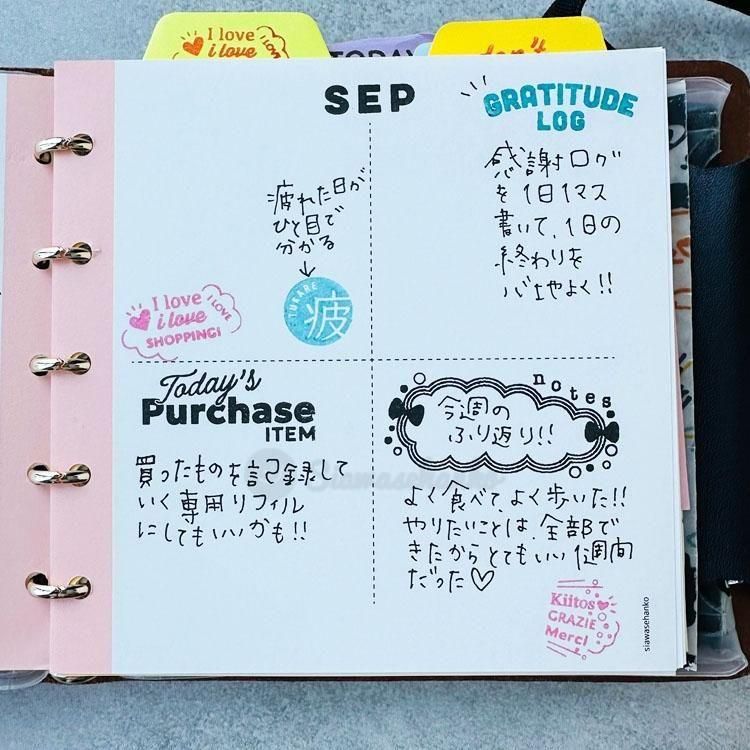 I love
i love
TODAY
don't
SEP
疲れた日が
ひと目で
分かる
TUKARE
疲
I love
i love
I LOVE
SHOPPING!
GRATITUDE
LOG
感謝ログ
を1日1マス
書いて、1日の
終わりを
心地よく!!
Today's
Purchase
ITEM
買ったものを記録して
いく専用リフィル
にしてもいいかも!!
notes
今週の
ふり返り!!
よく食べて、よく歩いた!!
やりたいことは、全部で
きたからとてもいい1週間
だった♡
Kiitos
GRAZIE
Merci
siawasehanko
Siawasehanko